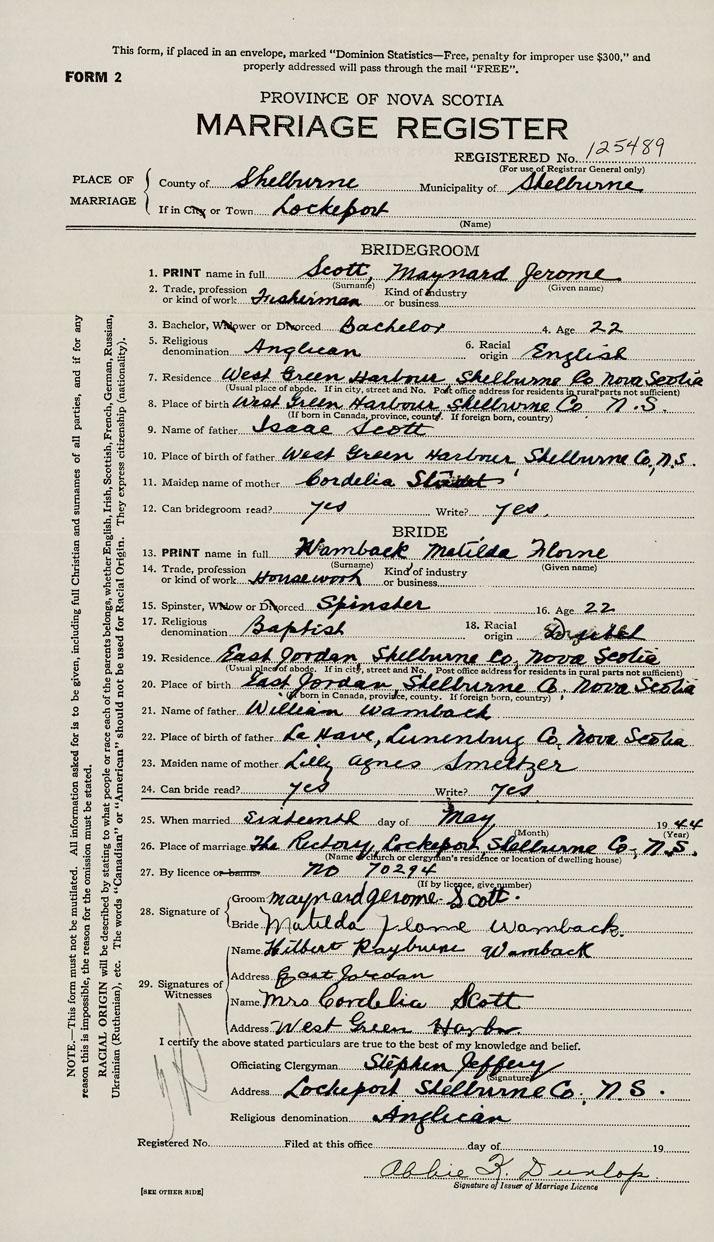 This form, if placed in an envelope, marked "Dominion Statistics—Free, penalty for improper use $300," and
properly addressed will pass through the mail "FREE".
FORM 2
PROVINCE OF NOVA SCOTIA
MARRIAGE REGISTER
REGISTERED No. 125489
(For use of Registrar General only)
PLACE OF MARRIAGE
County of Shelburne Municipality of Shelburne
If in City or Town Lockeport
(Name)
BRIDEGROOM
1. PRINT name in full Scott, Maynard Jerome
(Surname) (Given name)
2. Trade, profession or kind of work Fisherman Kind of industry or business
3. Bachelor, Widower or Divorced Bachelor 4. Age 22
5. Religious denomination Anglican 6. Racial origin English
7. Residence West Green Harbour, Shelburne Co Nova Scotia
(Usual place of abode. If in city, street and No. Post office address for residents in rural parts not sufficient)
8. Place of birth West Green Harbour Shelburne Co N.S.
(If born in Canada, province, county. If foreign born, country)
9. Name of father Isaac Scott
10. Place of birth of father West Green Harbour Shelburne Co, N.S.
11. Maiden name of mother Cordelia
12. Can bridegroom read? yes Write? yes.
BRIDE
13. PRINT name in full Wamback Matilda Florne
(Surname) (Given name)
14. Trade, profession or kind of work Housework Kind of industry or business
15. Spinster, Widow or Divorced Spinster 16. Age 22
17. Religious denomination Baptist 18. Racial origin
19. Residence East Jordan, Shelburne Co, Nova Scotia
(Usual place of abode. If in city, street and No. Post office address for residents in rural parts not sufficient)
20. Place of birth East Jordan, Shelburne Co. Nova Scotia
(If born in Canada, province, county. If foreign born, country)
21. Name of father William Wamback
22. Place of birth of father La Have, Lunenburg Co, Nova Scotia
23. Maiden name of mother Lilly Agnes Smeltzer
24. Can bride read? yes Write? Yes.
25. When married Sixteenth day of May 1944
(Month) (Year)
26. Place of marriage The Rectory, Lockeport, Shelburne Co, N.S.
(Name of church or clergyman's residence or location of dwelling house)
27. By licence or banns no 70294
(If by licence, give number)
28. Signature of
Groom Maynard Jerome Scott.
Bride Matilda Florne Wamback.
29. Signatures of Witnesses
Name Hilbert Rayburne Wamback
Address East Jordan
Name Mrs Cordelia Scott
Address West Green Harbor
I certify the above stated particulars are true to the best of my knowledge and belief.
Officiating Clergyman Stephen Jeffery
(Signature)
Address Lockeport Shelburne Co, N.S.
Religious denomination Anglican
Registered No. Filed at this office day of 19
Abbie K. Dunlop.
Signature of Issuer of Marriage Licence
[SEE OTHER SIDE]
NOTE.—This form must not be mutilated. All information asked for is to be given, including full Christian and surnames of all parties, and if for any
reason this is impossible, the reason for the omission must be stated.
RACIAL ORIGIN will be described by stating to what people or race each of the parents belongs, whether English, Irish, Scottish, French, German, Russian,
Ukrainian (Ruthenian), etc. The words "Canadian" or "American" should not be used for Racial Origin. They express citizenship (nationality).